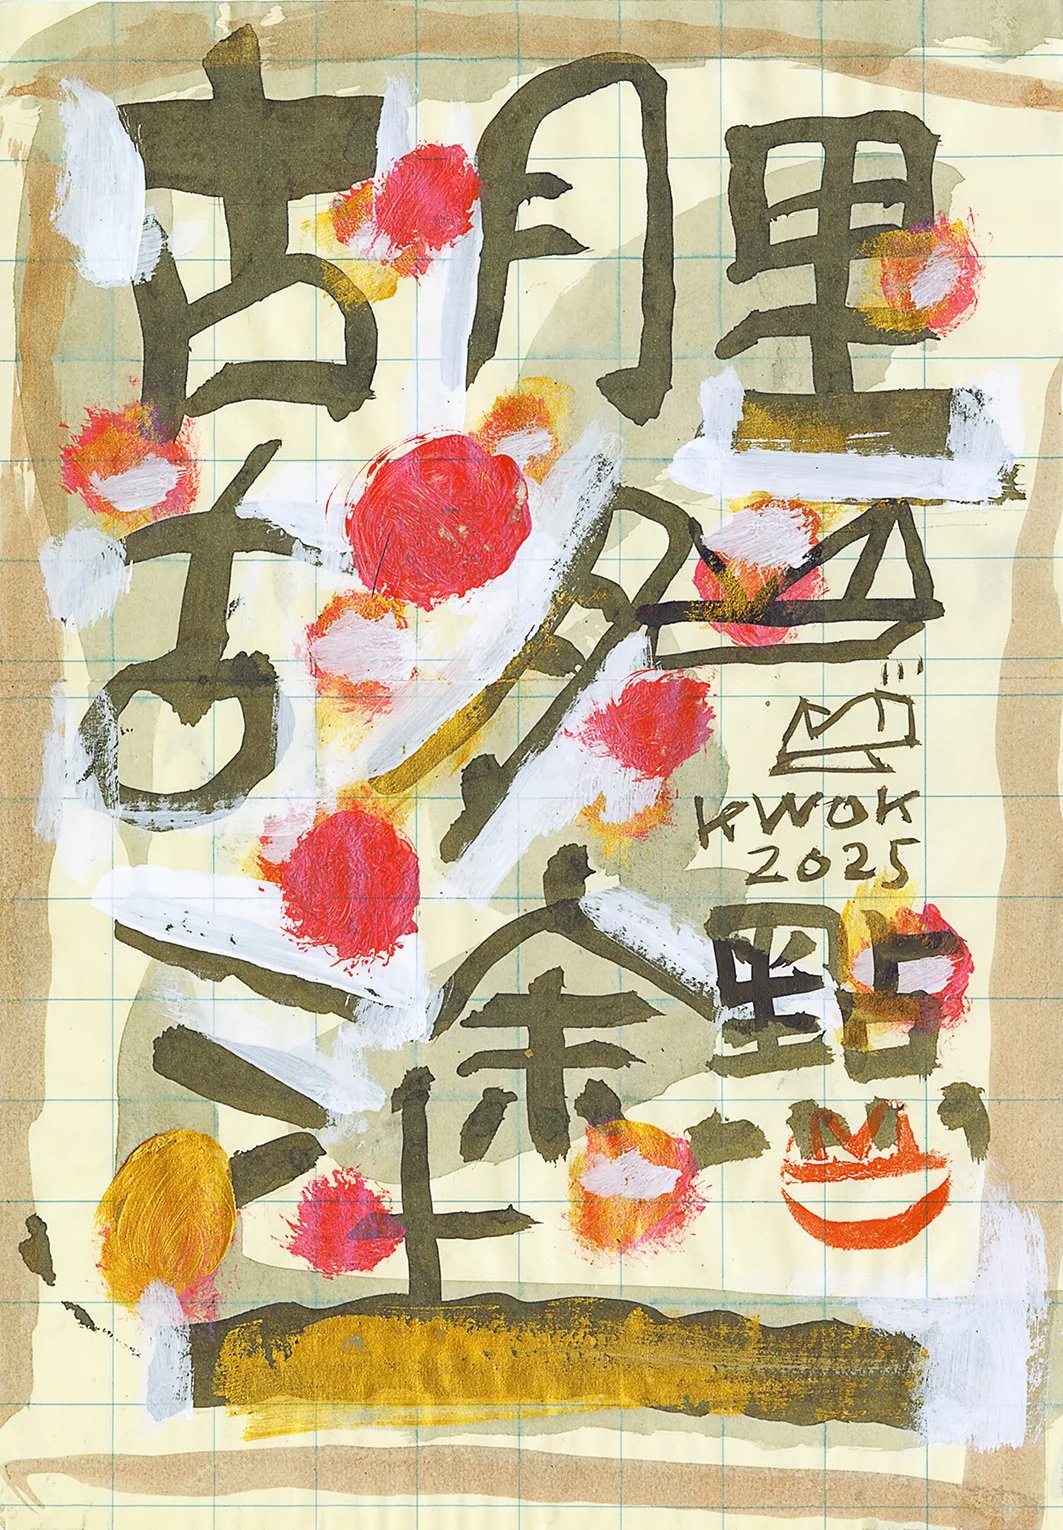 胡里
胡
KWOK
2025
塗點